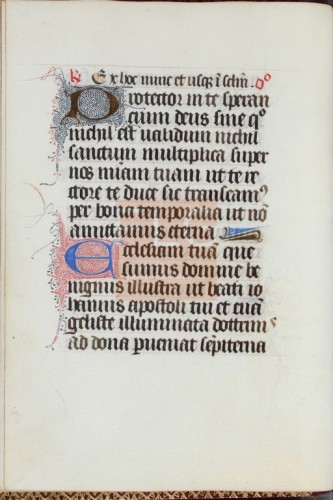 R Ex hoc nunc et usqȝ ī sclm̄. Oo
Protector in te speran
cium deus sine qo
nichil est ualidum nichil
sanctum multiplica super
nos miam tuam ut te re
ctore te duce sic transeamꝰ
per bona temporalia ut nō
amittamus eterna
Ecclesiam tuā que
sumus domine be
nignus illustra ut beati io
hannis apostoli tui et euā
geliste illuminata doctrinis
ad dona ꝑueniat sempiterna